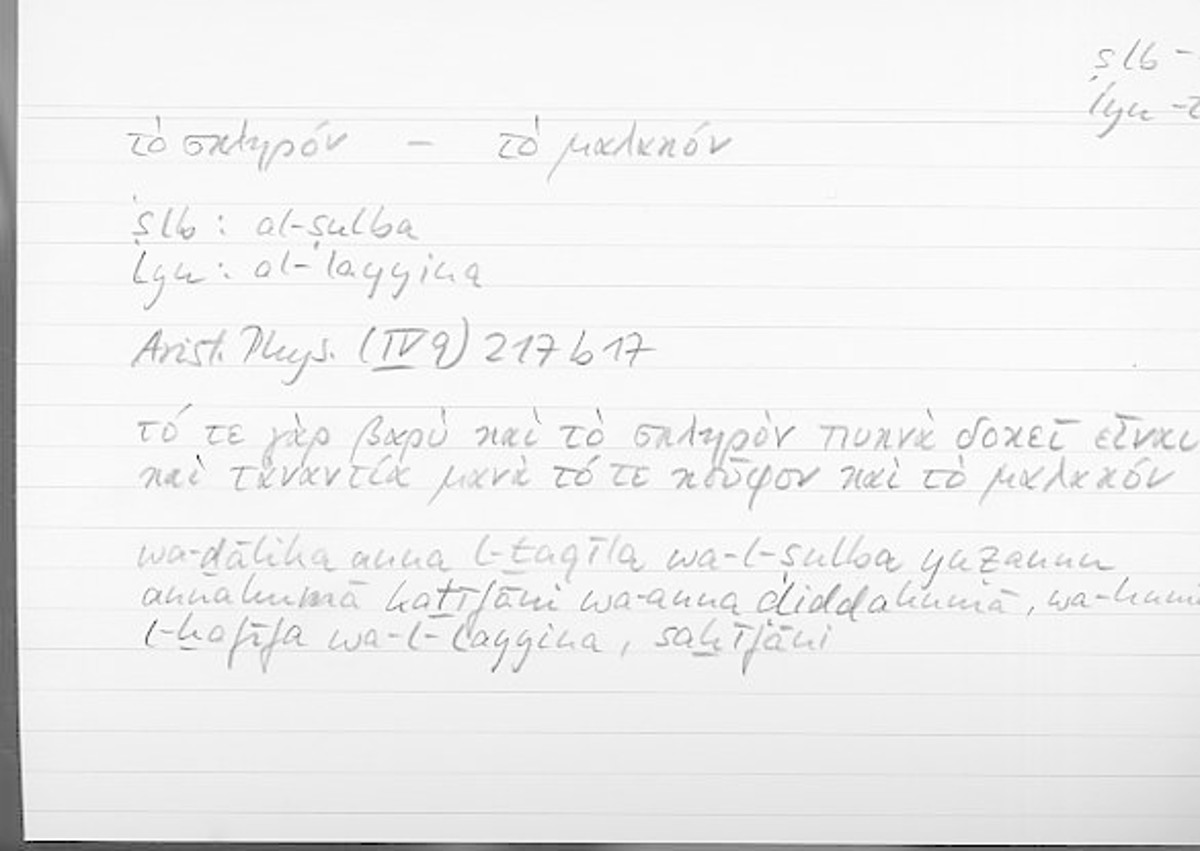 ṣlb -
lyn -
τὸ σκληρόν – τὸ μαλακόν
ṣlb : al-ṣulba
lyn : al-layyina
Arist. Phys. (IV 9) 217 b 17
τό τε γὰρ βαρὺ καὶ τὸ σκληρὸν πυκνὰ δοκεῖ εἶναι
καὶ τἀναντία μανὰ τό τε κοῦφον καὶ τὸ μαλακόν
wa-ḏālika anna l-ṯaqīla wa-l-ṣulba yuẓannu
annahumā kaṯīfāni wa-anna ḍiddahumā, wa-humā
l-ḫafīfa wa-l-layyina, saḫīfāni